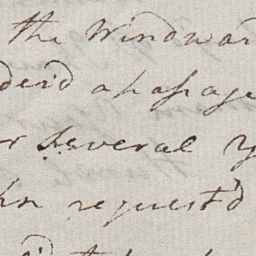 the Windwar
der'd a passage
r several y
hn request'd